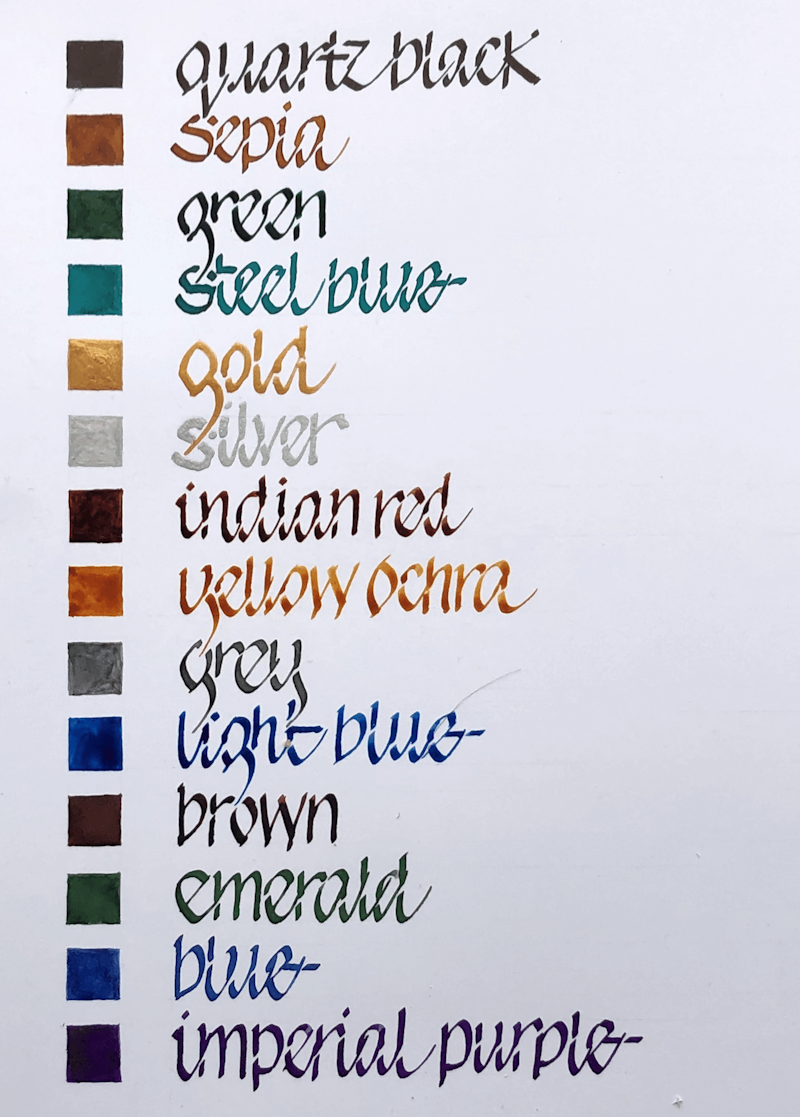 quartz black
sepia
green
steel blue
gold
silver
indian red
yellow ochra
grey
light blue
brown
emerald
blue
imperial purple